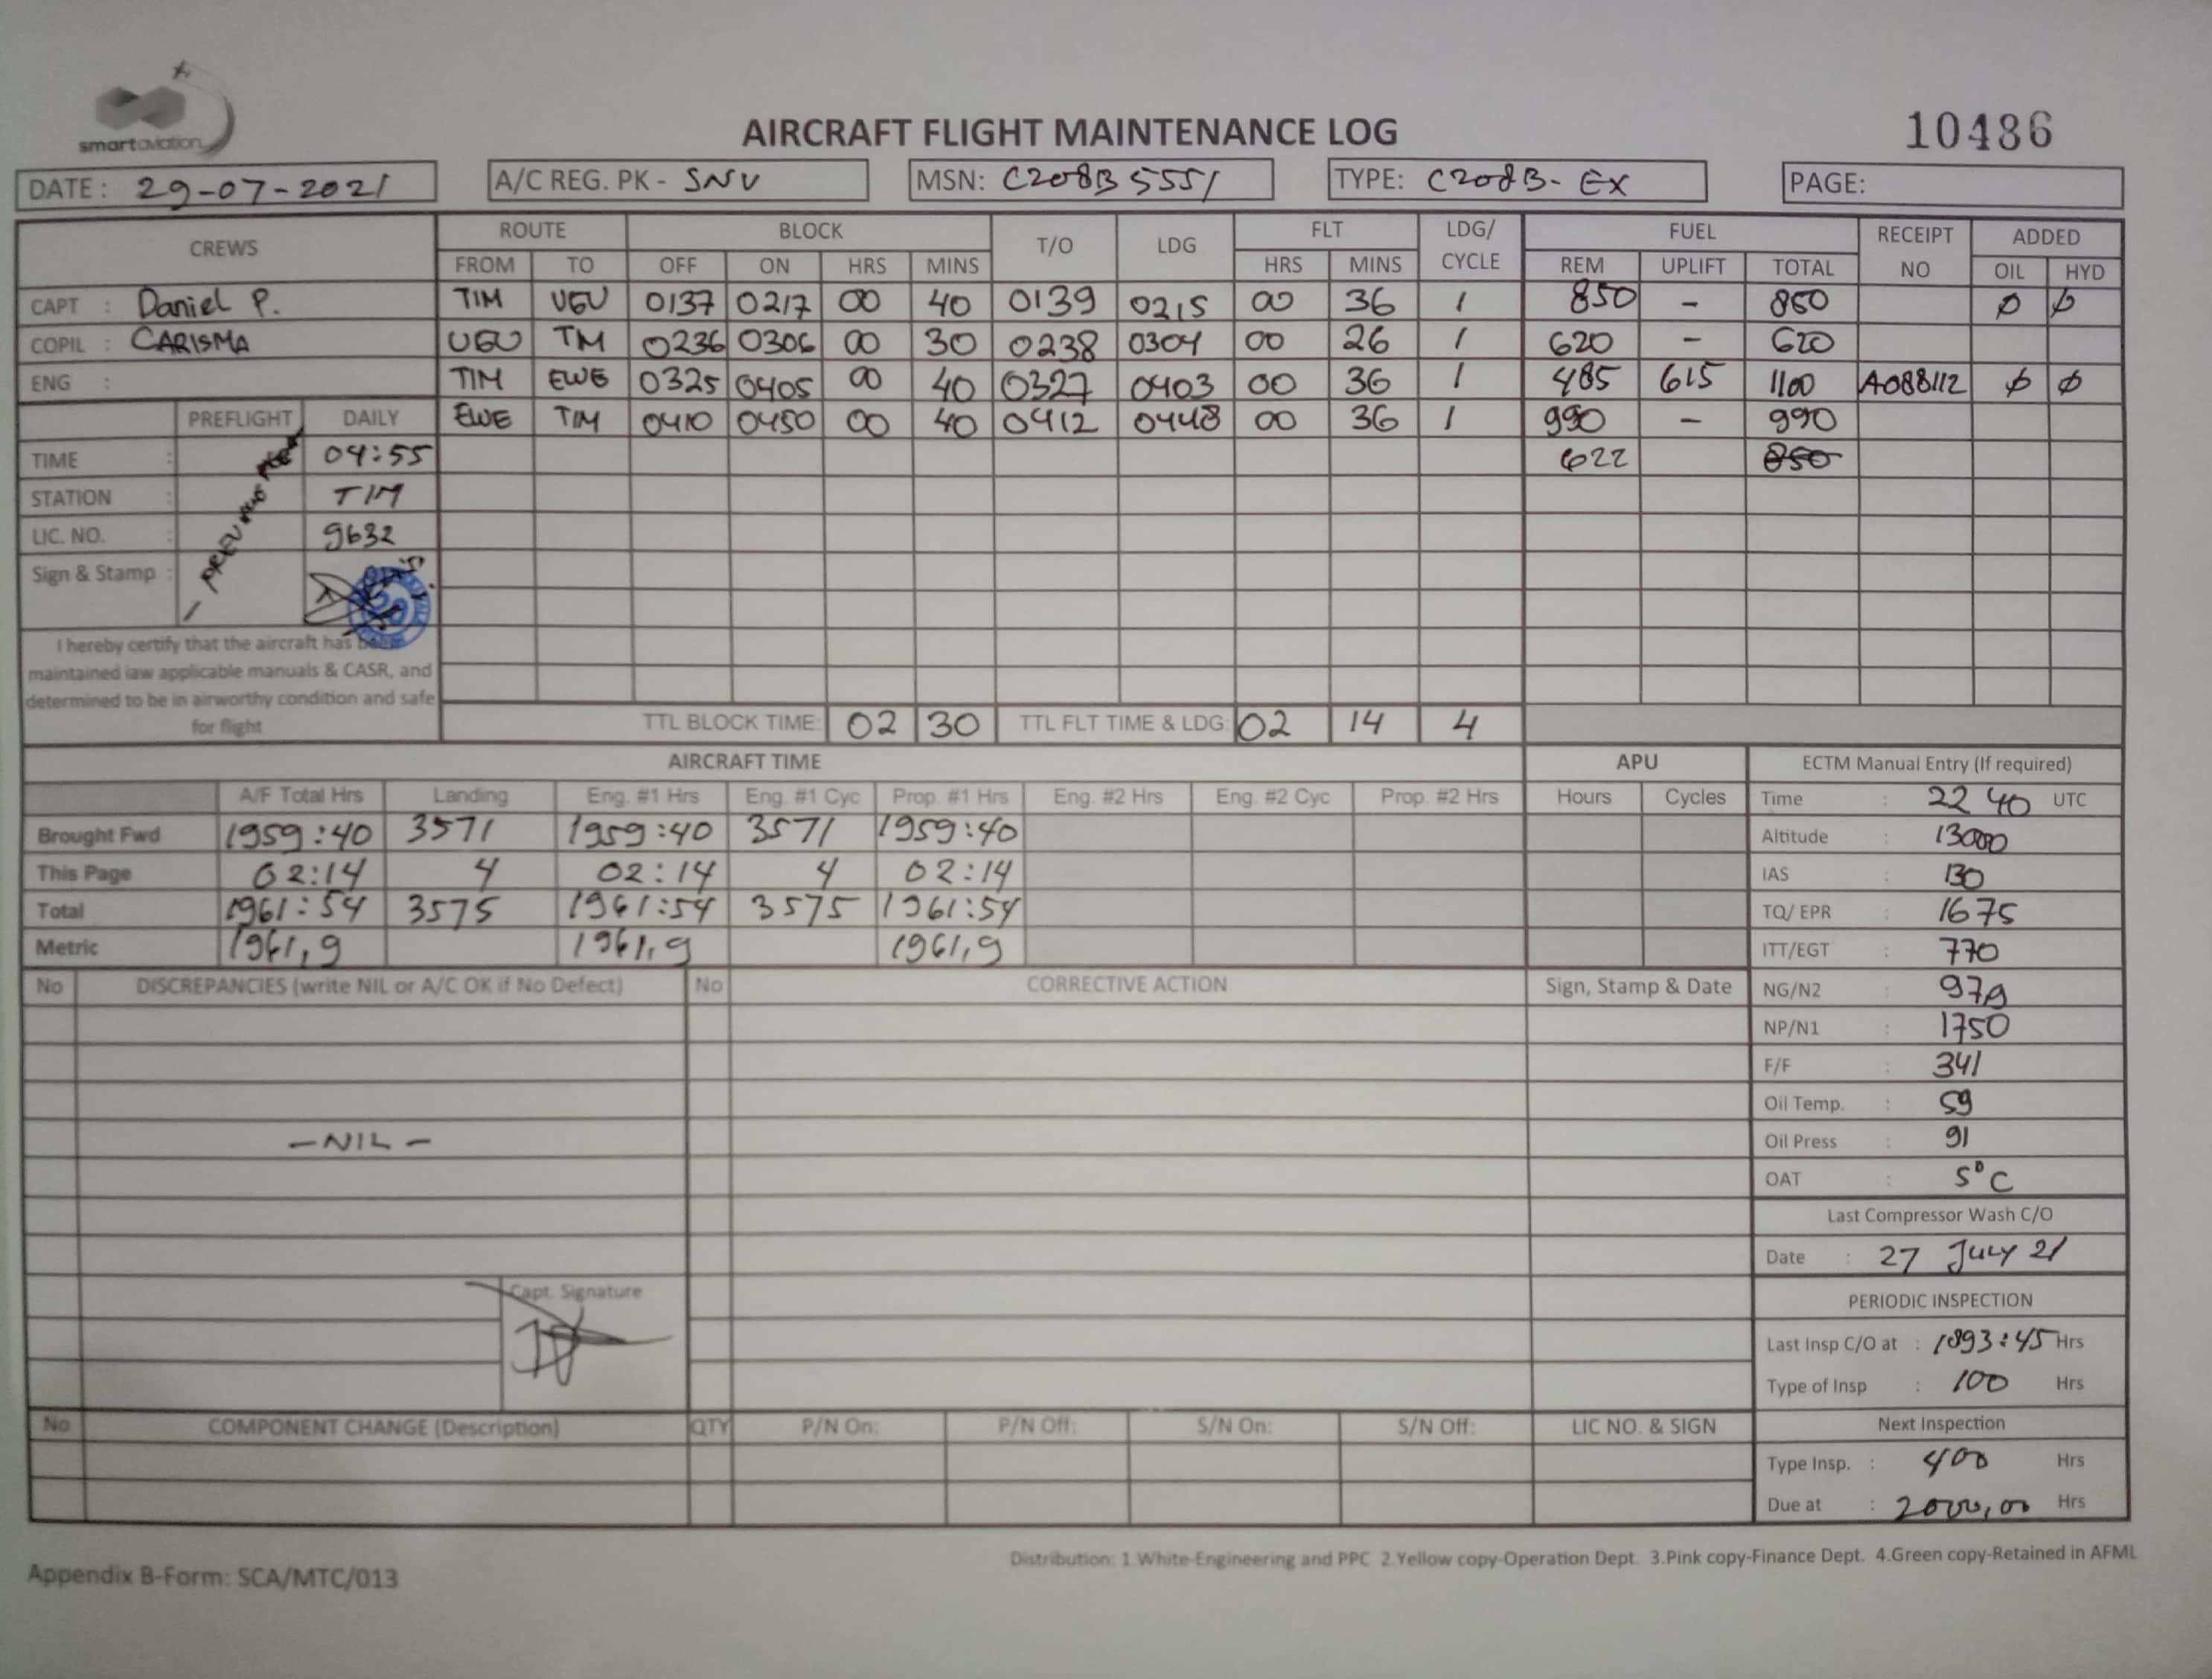 smartaviation
AIRCRAFT FLIGHT MAINTENANCE LOG
10486
DATE: 29-07-2021 A/C REG. PK - SNV MSN: C208B 5551 TYPE: C208B-EX PAGE:
CREWS ROUTE BLOCK T/O LDG FLT LDG/ CYCLE FUEL RECEIPT NO ADDED
FROM TO OFF ON HRS MINS HRS MINS REM UPLIFT TOTAL OIL HYD
CAPT : Daniel P. TIM UGU 0137 0217 00 40 0139 0215 00 36 1 850 - 850 Ø Ø
COPIL : CARISMA UGU TIM 0236 0306 00 30 0238 0304 00 26 1 620 - 620
ENG : TIM EWE 0325 0405 00 40 0327 0403 00 36 1 485 615 1100 A088112 Ø Ø
PREFLIGHT DAILY EWE TIM 0410 0450 00 40 0412 0448 00 36 1 990 - 990
TIME : 04:55 622 850
STATION : TIM
LIC. NO. : 9632
Sign & Stamp :
I hereby certify that the aircraft has been
maintained iaw applicable manuals & CASR, and
determined to be in airworthy condition and safe
for flight
TTL BLOCK TIME: 02 30 TTL FLT TIME & LDG: 02 14 4
AIRCRAFT TIME APU ECTM Manual Entry (If required)
A/F Total Hrs Landing Eng. #1 Hrs Eng. #1 Cyc Prop. #1 Hrs Eng. #2 Hrs Eng. #2 Cyc Prop. #2 Hrs Hours Cycles Time : 22 40 UTC
Brought Fwd 1959:40 3571 1959:40 3571 1959:40 Altitude : 13000
This Page 02:14 4 02:14 4 02:14 IAS : 130
Total 1961:54 3575 1961:54 3575 1961:54 TQ/ EPR : 1675
Metric 1961,9 1961,9 1961,9 ITT/EGT : 770
No DISCREPANCIES (write NIL or A/C OK if No Defect) No CORRECTIVE ACTION Sign, Stamp & Date NG/N2 :
NP/N1 : 1750
F/F : 341
Oil Temp. : 59
- NIL - Oil Press : 91
OAT : 5°C
Last Compressor Wash C/O
Date : 27 July 21
Capt. Signature
PERIODIC INSPECTION
Last Insp C/O at : 1893:45 Hrs
Type of Insp : 100 Hrs
No COMPONENT CHANGE (Description) QTY P/N On: P/N Off: S/N On: S/N Off: LIC NO. & SIGN Next Inspection
Type Insp. : 400 Hrs
Due at : 2000,00 Hrs
Distribution: 1.White-Engineering and PPC 2.Yellow copy-Operation Dept. 3.Pink copy-Finance Dept. 4.Green copy-Retained in AFML
Appendix B-Form: SCA/MTC/013